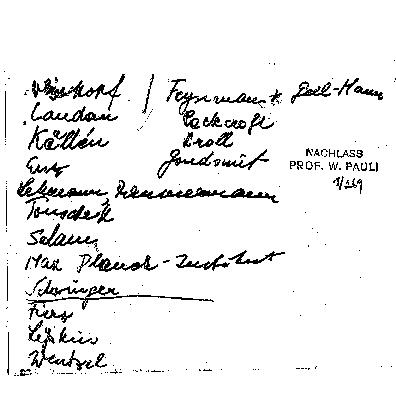 Weisskopf / Feynman * Gell-Mann
Landau Cockcroft
Källén Drell
Enz Goudsmit
Lehmann, Zimmermann
NACHLASS
PROF. W. PAULI
Touschek
Salam
Max Planck-Institut
Schwinger
Fierz
Wentzel